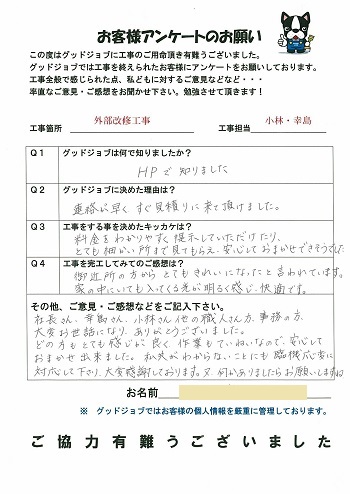 お客様アンケートのお願い
この度はグッドジョブに工事のご用命頂き有難うございました。
グッドジョブでは工事を終えられたお客様にアンケートをお願いしております。
工事全般で感じられた点、私どもに対するご意見などなど・・・
率直なご意見・ご感想をお聞かせ下さい。勉強させて頂きます!
工事箇所 外部改修工事 工事担当 小林・幸島
Q1 グッドジョブは何で知りましたか?
HPで知りました
Q2 グッドジョブに決めた理由は?
連絡が早く すぐ見積りに来て頂けました。
Q3 工事をする事を決めたキッカケは?
料金をわかりやすく提示していただけたり、
とても細かい所まで見てもらえ、安心しておまかせできそうでした
Q4 工事を完工してみてのご感想は?
御近所の方からとてもきれいになったと言われています。
家の中にいても入ってくる光が明るく感じ、快適です。
その他、ご意見・ご感想などをご記入下さい。
社長さん、幸島さん、小林さん他の職人さん方、事務の方、
大変お世話になり、ありがとうございました。
どの方もとても感じが良く、作業もていねいなので、安心して
おまかせ出来ました。私共がわからないことにも臨機応変に
対応して下り、大変感謝しております。又、何かありましたらお願いしますね
お名前
※ グッドジョブではお客様の個人情報を厳重に管理しております。
ご協力有難うございました